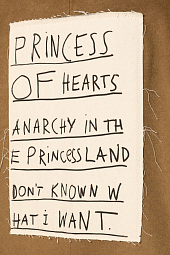 PRINCESS
OF HEARTS
ANARCHY IN TH
E PRINCESS LAND
DON'T KNOWN W
HAT I WANT.